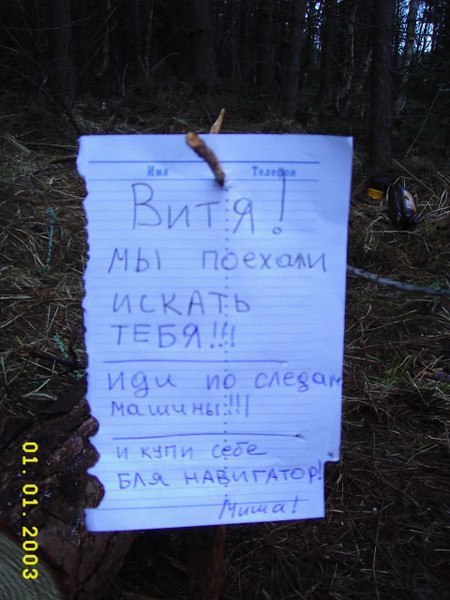 Имя Телефон
Витя!
мы поехали
искать
тебя!!!
иди по следам
машины!!!
и купи себе
бля навигатор!
Миша!
01.01.2003